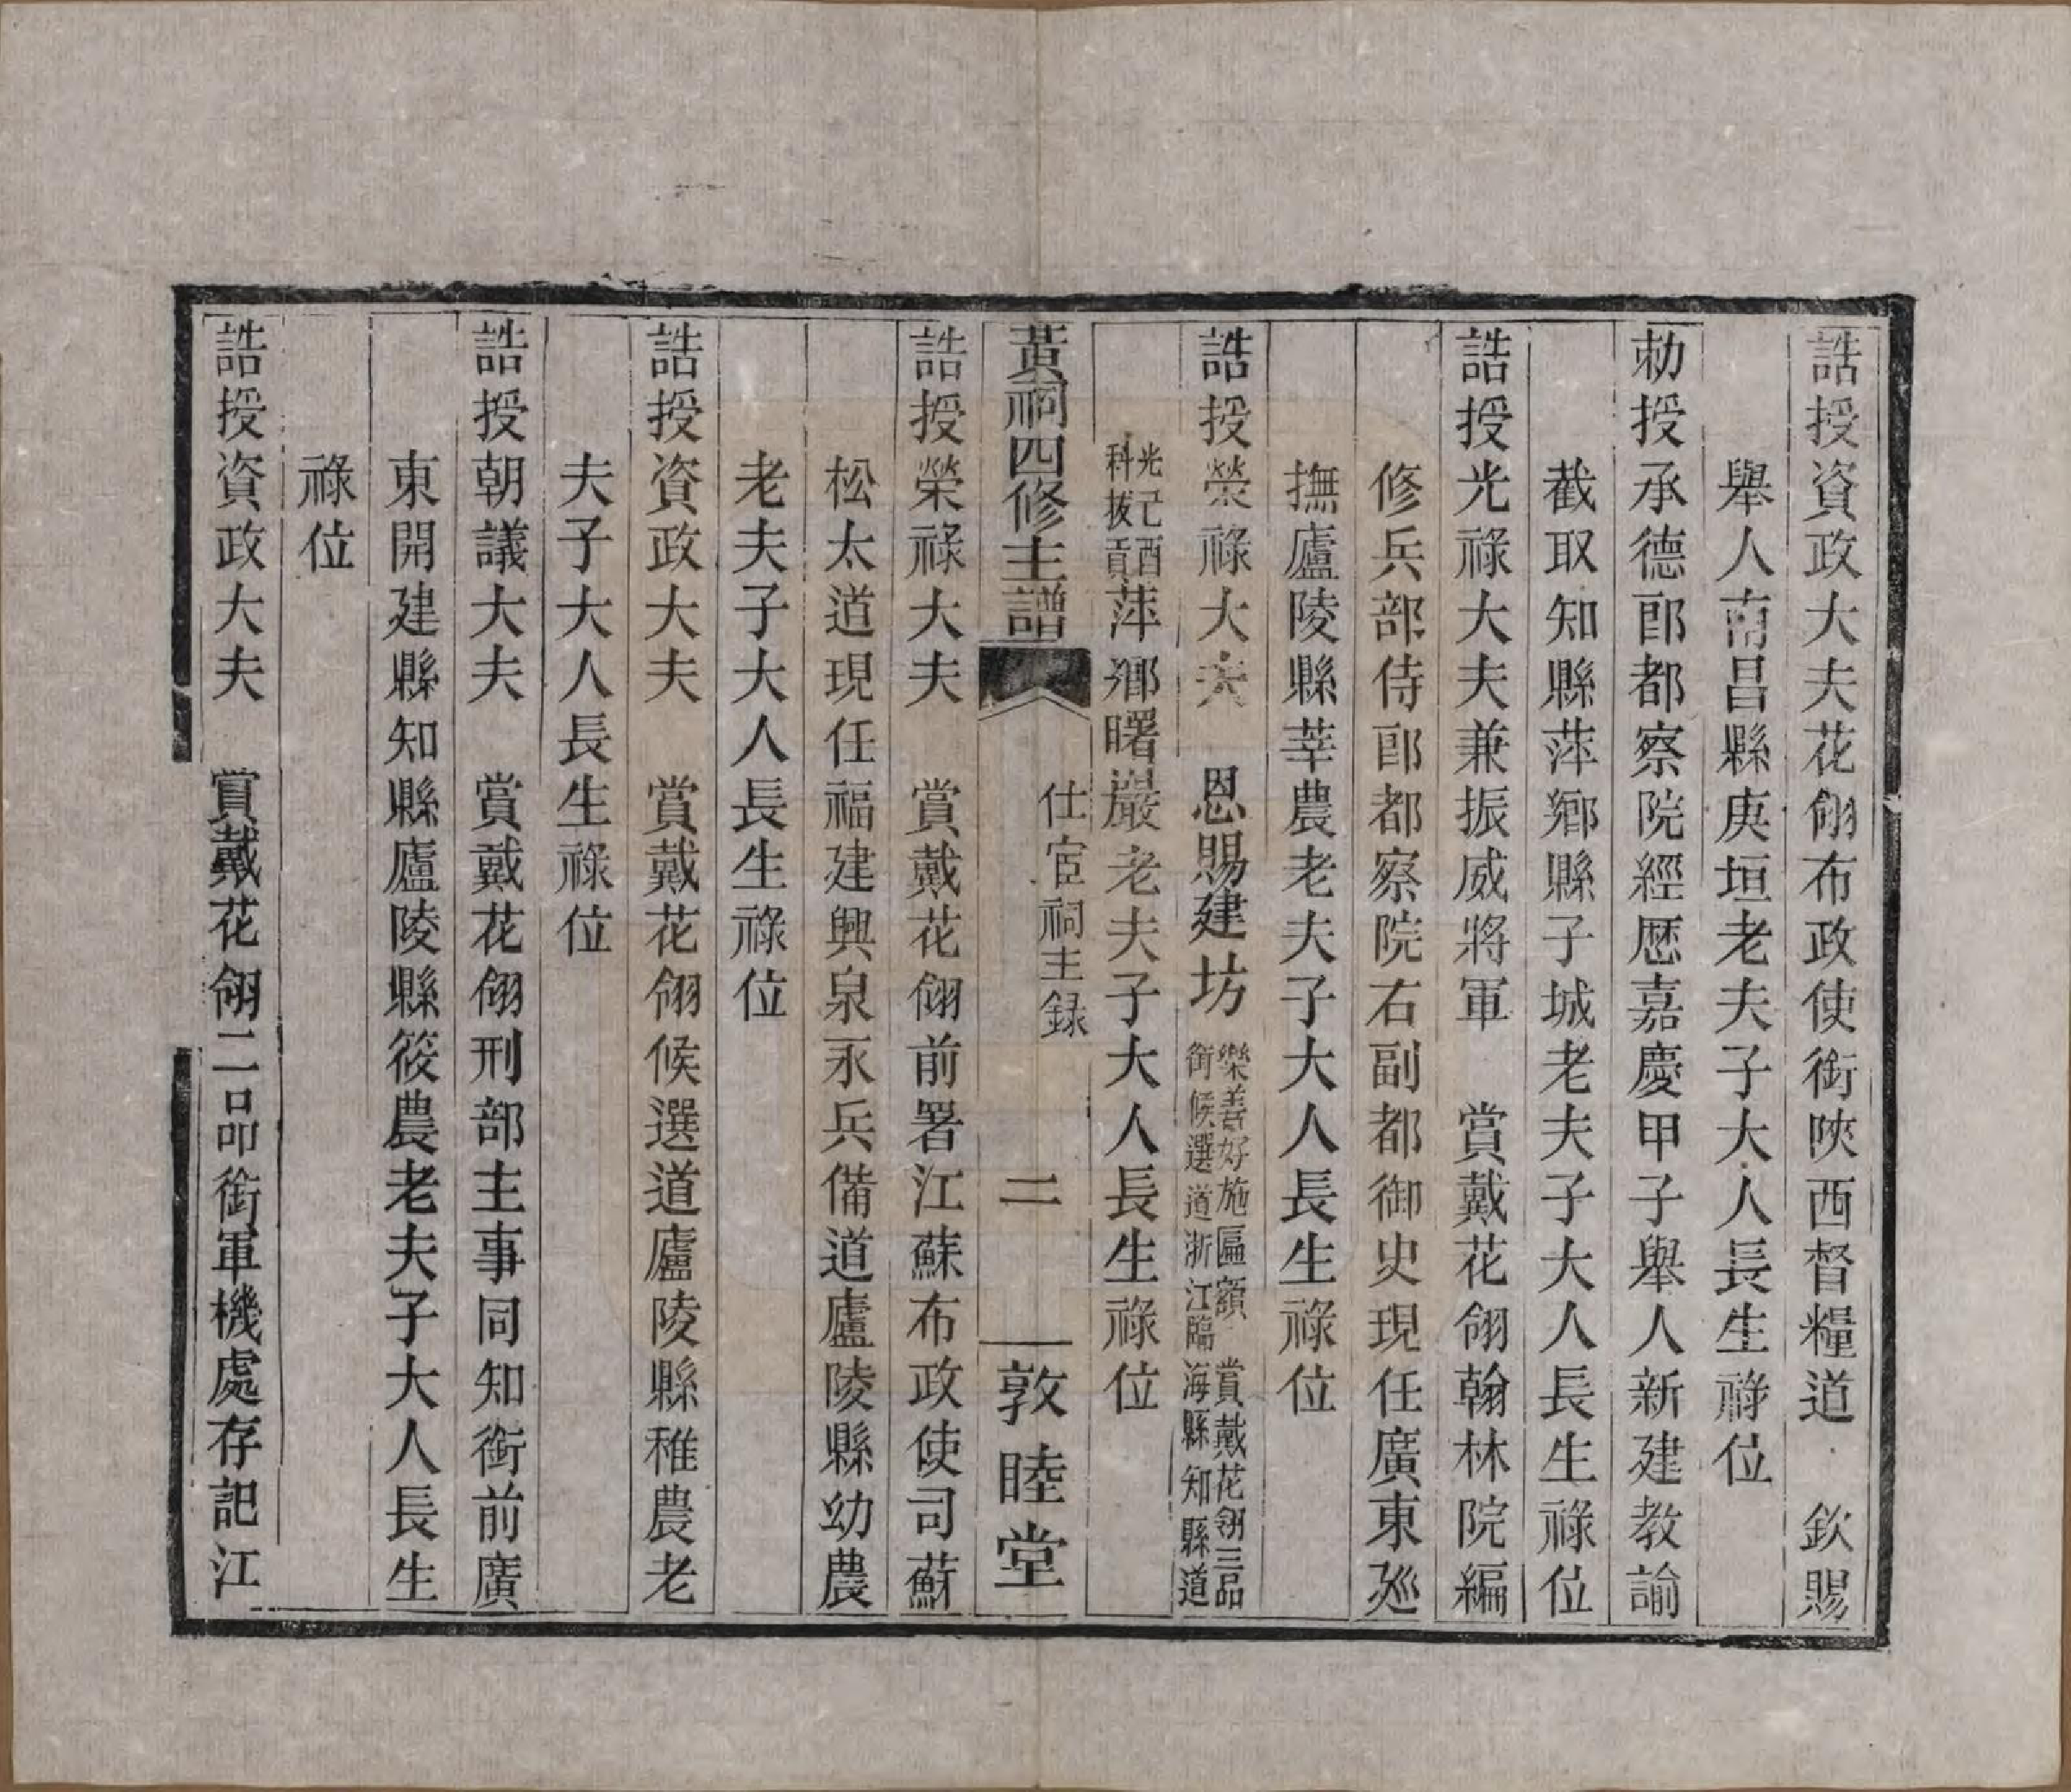 誥授資政大夫花翎布政使銜陝西督糧道　欽賜
舉人南昌縣庚垣老夫子大人長生祿位
勅授承德郎都察院經歷嘉慶甲子舉人新建教諭
截取知縣萍鄉縣子城老夫子大人長生祿位
誥授光祿大夫兼振威將軍　賞戴花翎翰林院編
修兵部侍郎都察院右副都御史現任廣東巡
撫廬陵縣莘農老夫子大人長生祿位
誥授榮祿大夫　恩賜建坊樂善好施匾額　賞戴花翎三品銜候選道浙江臨海縣知縣道
光己酉科拔貢萍鄉曙巖老夫子大人長生祿位
黃祠四修主譜　仕宦祠主錄　二　敦睦堂
誥授榮祿大夫　賞戴花翎前署江蘇布政使司蘇
松太道現任福建興泉永兵備道廬陵縣幼農
老夫子大人長生祿位
誥授資政大夫　賞戴花翎候選道廬陵縣稚農老
夫子大人長生祿位
誥授朝議大夫　賞戴花翎刑部主事同知銜前廣
東開建縣知縣廬陵縣筱農老夫子大人長生
祿位
誥授資政大夫　賞戴花翎二品銜軍機處存記江